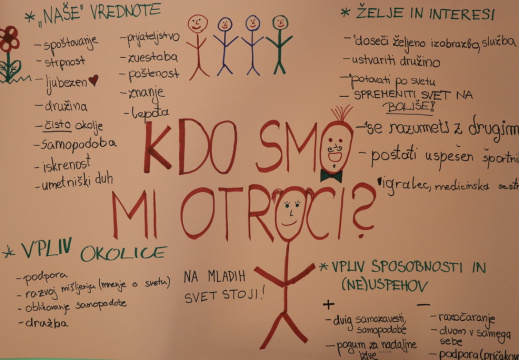 * „NAŠE” VREDNOTE
- spoštovanje
- strpnost
- ljubezen
- družina
- čisto okolje
- samopodoba
- iskrenost
- umetniški duh
- prijateljstvo
- zvestoba
- poštenost
- znanje
- lepota
* ŽELJE IN INTERESI
- doseči željeno izobrazbo, službo,
- ustvariti družino
- potovati po svetu
- SPREMENITI SVET NA
BOLJŠE!
- se razumeti z drugim
- postati uspešen športni
igralec, medicinska sest
KDO SMO
MI OTROCI?
* VPLIV OKOLICE
- podpora
- razvoj mišljenja (mnenje o svetu)
- oblikovanje samopodobe
- družba
NA MLADIH
SVET STOJI!
* VPLIV SPOSOBNOSTI IN
(NE)USPEHOV
+
- dvig samozavesti,
samopodobe
- pogum za nadaljne
-
- razočaranje
- dvom v samega
sebe
- podpora